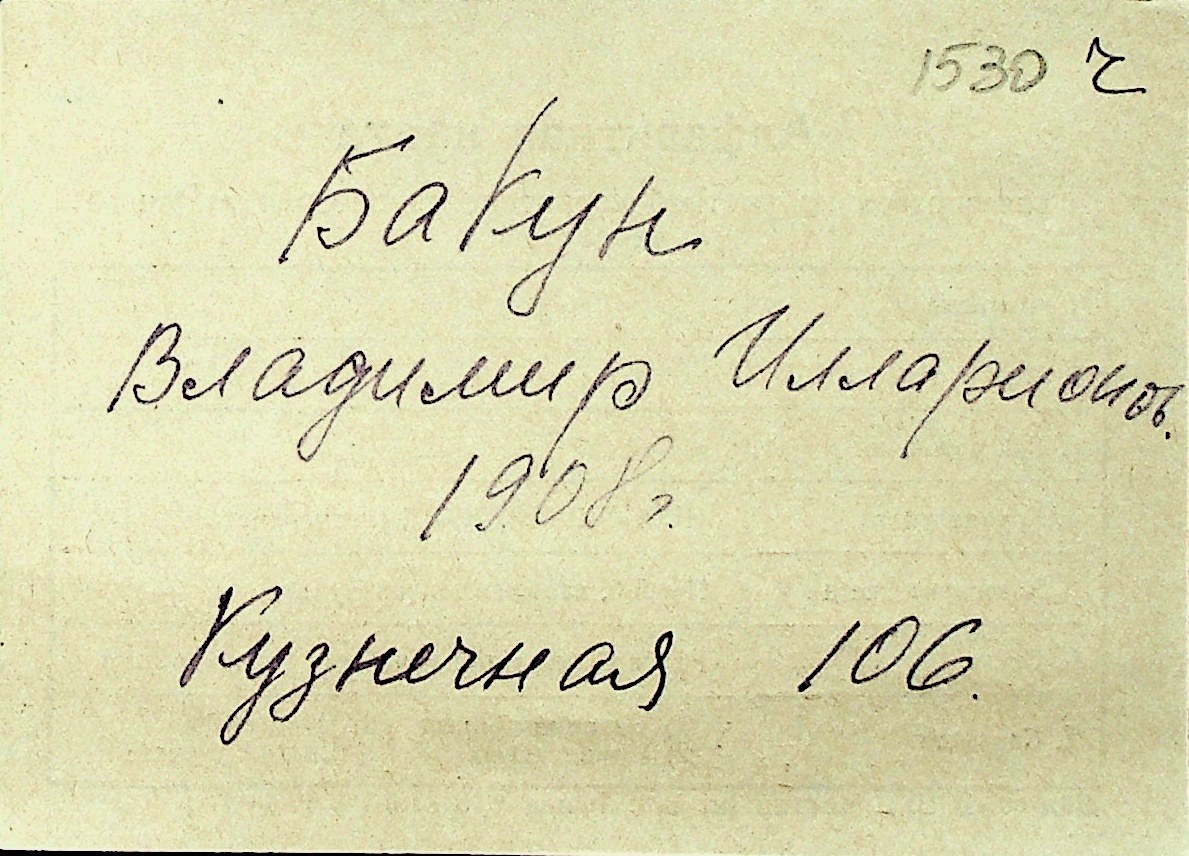 1530 ч
Бакун
Владимир Илларионов.
1908 г.
Кузнечная 106.